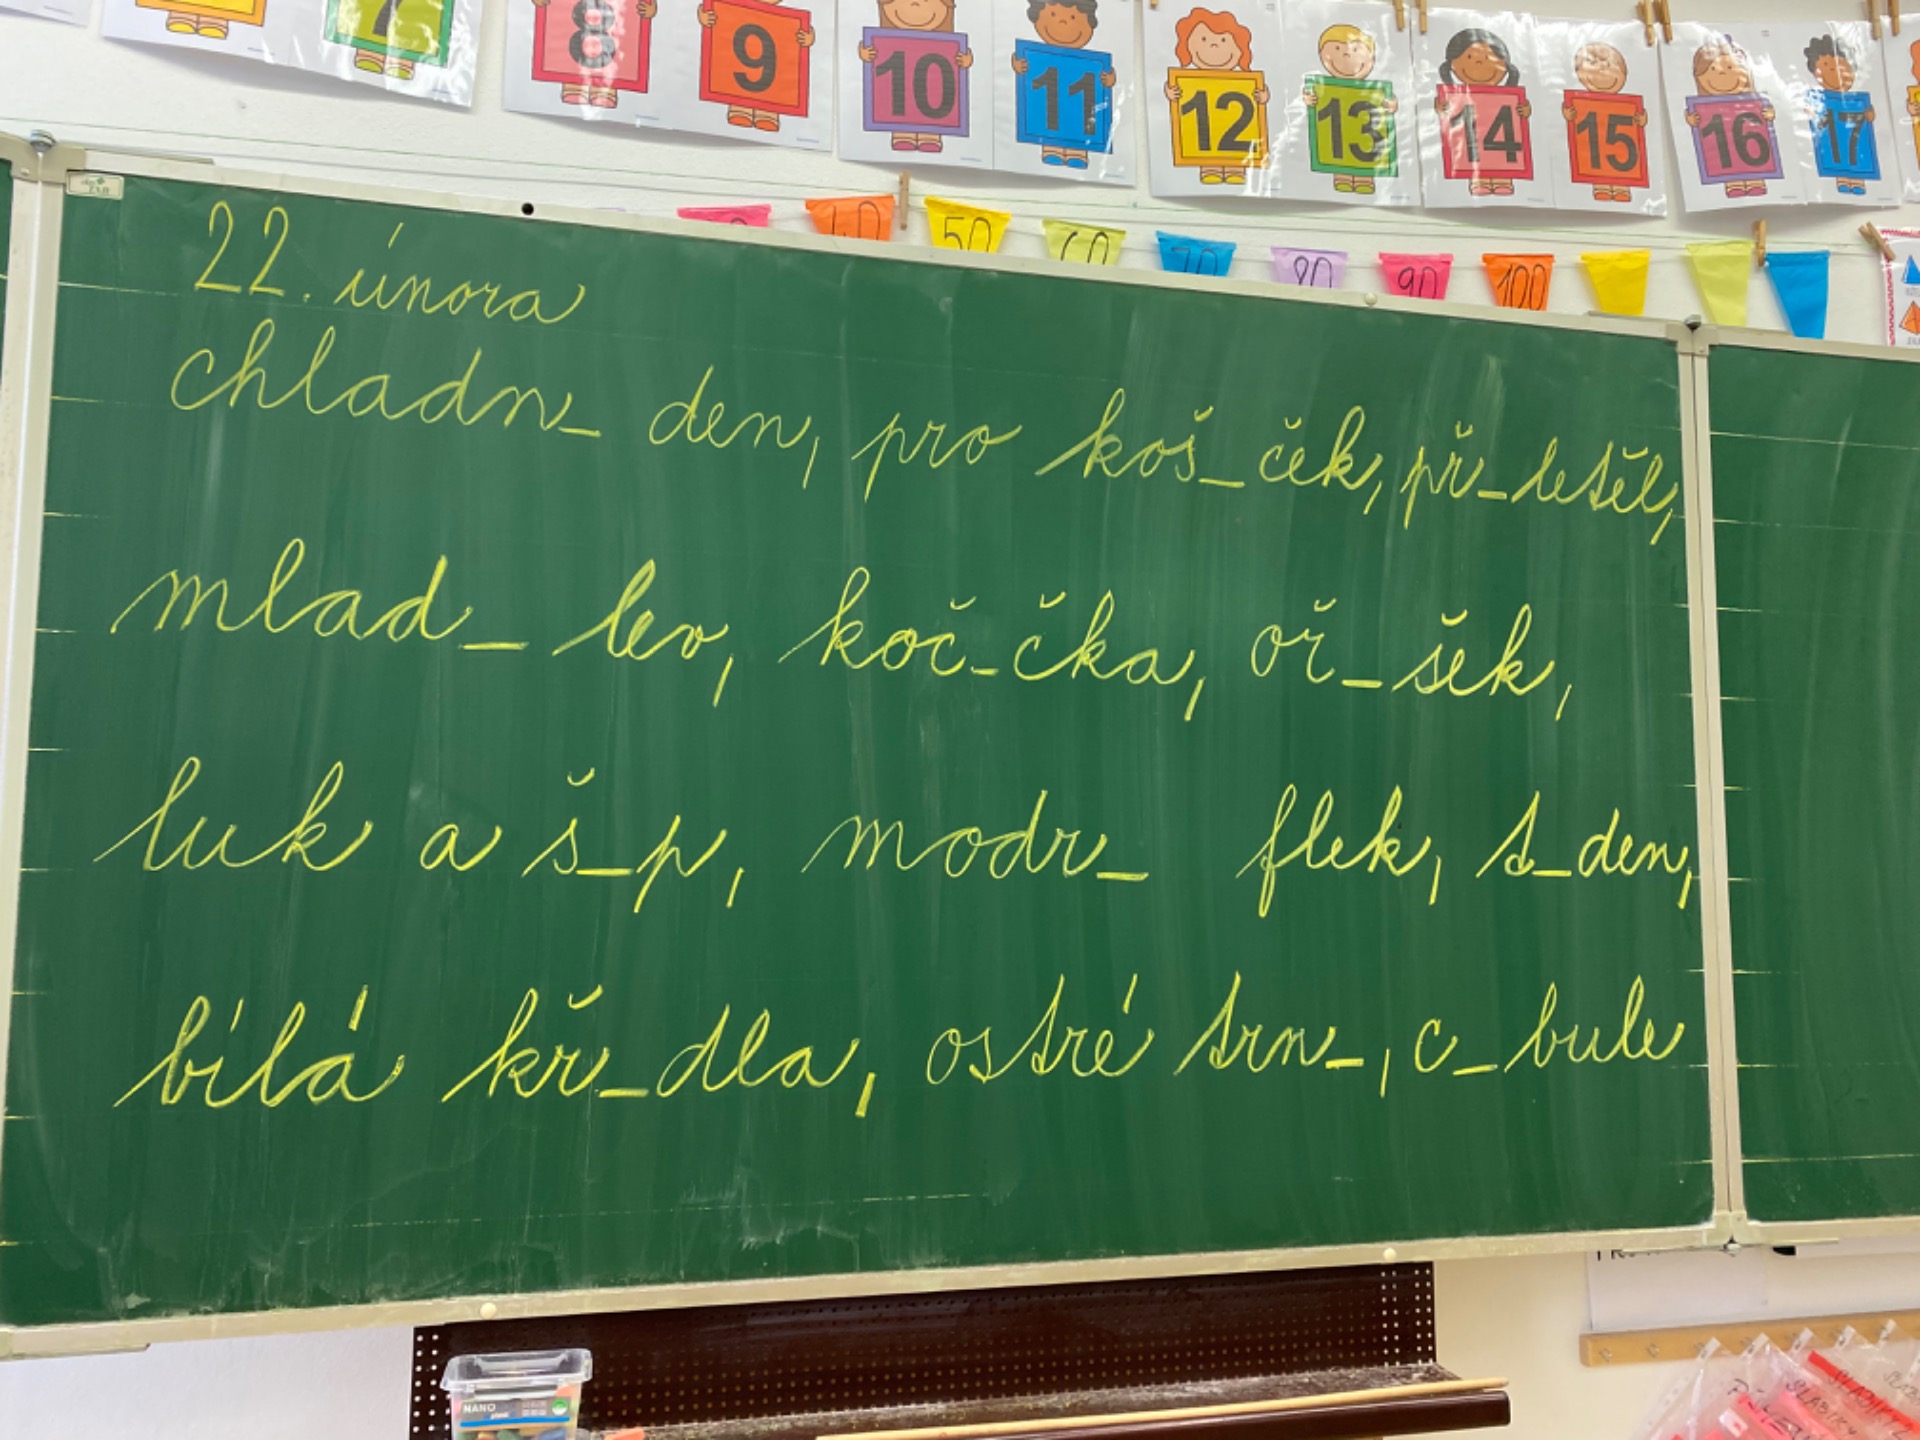 7 8 9 10 11 12 13 14 15 16 17
40 50 60 70 80 90 100
22. února
chladn_ den, pro koš_ček, př_letěl,
mlad_ lev, koč_čka, oř_šek,
luk a š_p, modr_ flek, t_den,
bílá kř_dla, ostré trn_, c_bule
NANO